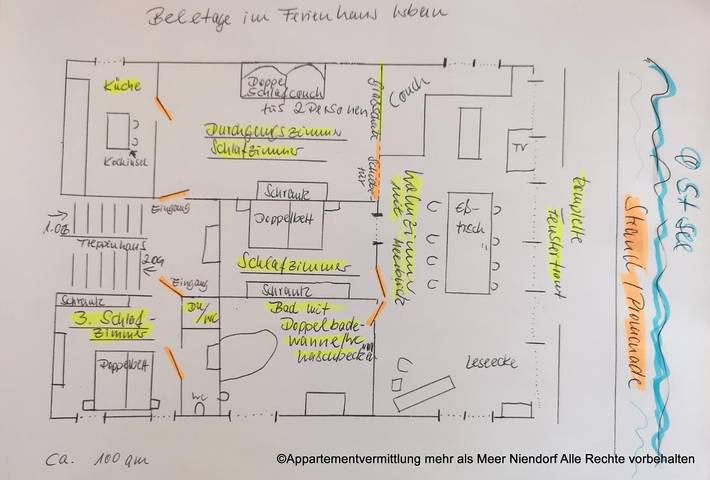 Beletage im Ferienhaus Usbem
Küche
Kochinsel
Doppel
Schlafcouch
für 2 Personen
Durchgangszimmer
Schlafzimmer
Glasscheibe
Schiebe
tür
Couch
TV
Eß-
tisch
Wohnzimmer
mit Meerblick
komplette
Fensterfront
Strand/Promenade
Ostsee
Eingang
1.OG
Treppenhaus
2.OG
Eingang
Schrank
Doppelbett
Schlafzimmer
Schrank
Schrank
3. Schlaf-
zimmer
Doppelbett
Du/
WC
WC
Bad mit
Doppelbade-
wanne/WC
Waschbecken
Leseecke
ca. 100 qm
©Appartementvermittlung mehr als Meer Niendorf Alle Rechte vorbehalten